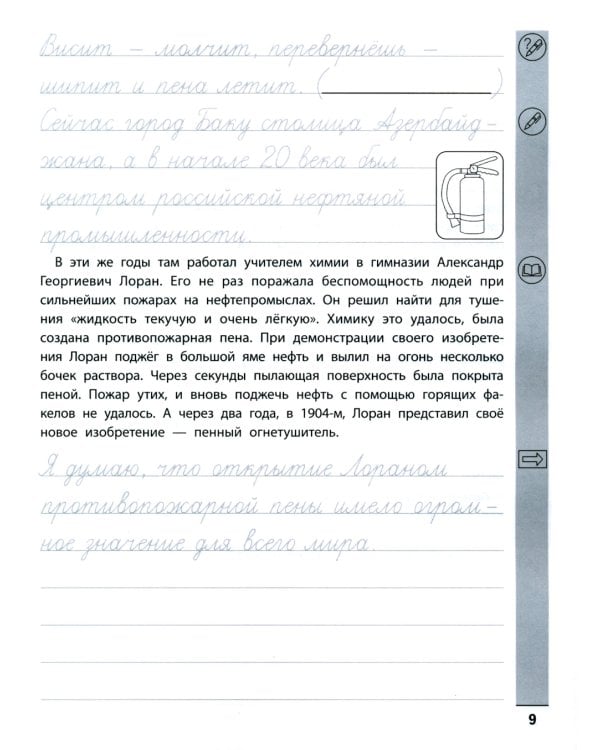 Висит – молчит, перевернёшь –
шипит и пена летит. (____________)
Сейчас город Баку столица Азербайд-
жана, а в начале 20 века был
центром российской нефтяной
промышленности.
В эти же годы там работал учителем химии в гимназии Александр
Георгиевич Лоран. Его не раз поражала беспомощность людей при
сильнейших пожарах на нефтепромыслах. Он решил найти для туше-
ния «жидкость текучую и очень лёгкую». Химику это удалось, была
создана противопожарная пена. При демонстрации своего изобрете-
ния Лоран поджёг в большой яме нефть и вылил на огонь несколько
бочек раствора. Через секунды пылающая поверхность была покрыта
пеной. Пожар утих, и вновь поджечь нефть с помощью горящих фа-
келов не удалось. А через два года, в 1904-м, Лоран представил своё
новое изобретение — пенный огнетушитель.
Я думаю, что открытие Лораном
противопожарной пены имело огром-
ное значение для всего мира.
9